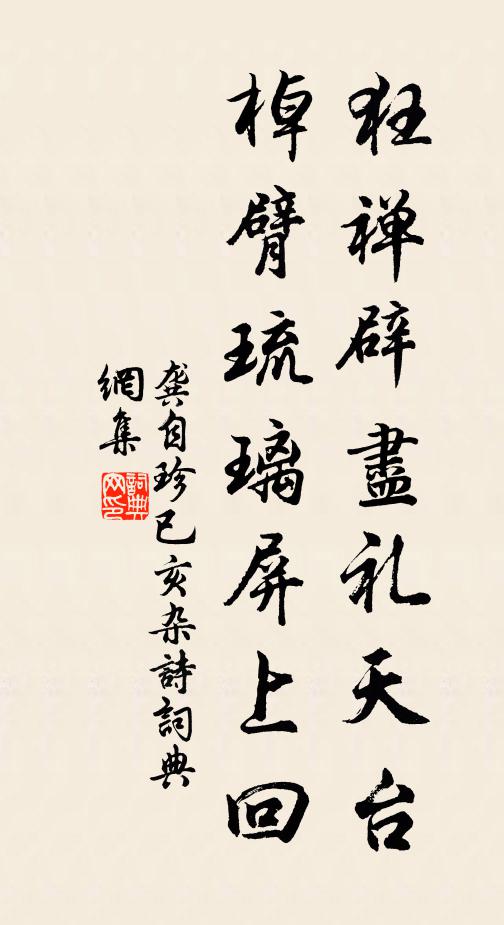 狂禅辟盡礼天台
掉臂琉璃屏上回
龔自珍己亥杂詩詞典
網集
詞典网印